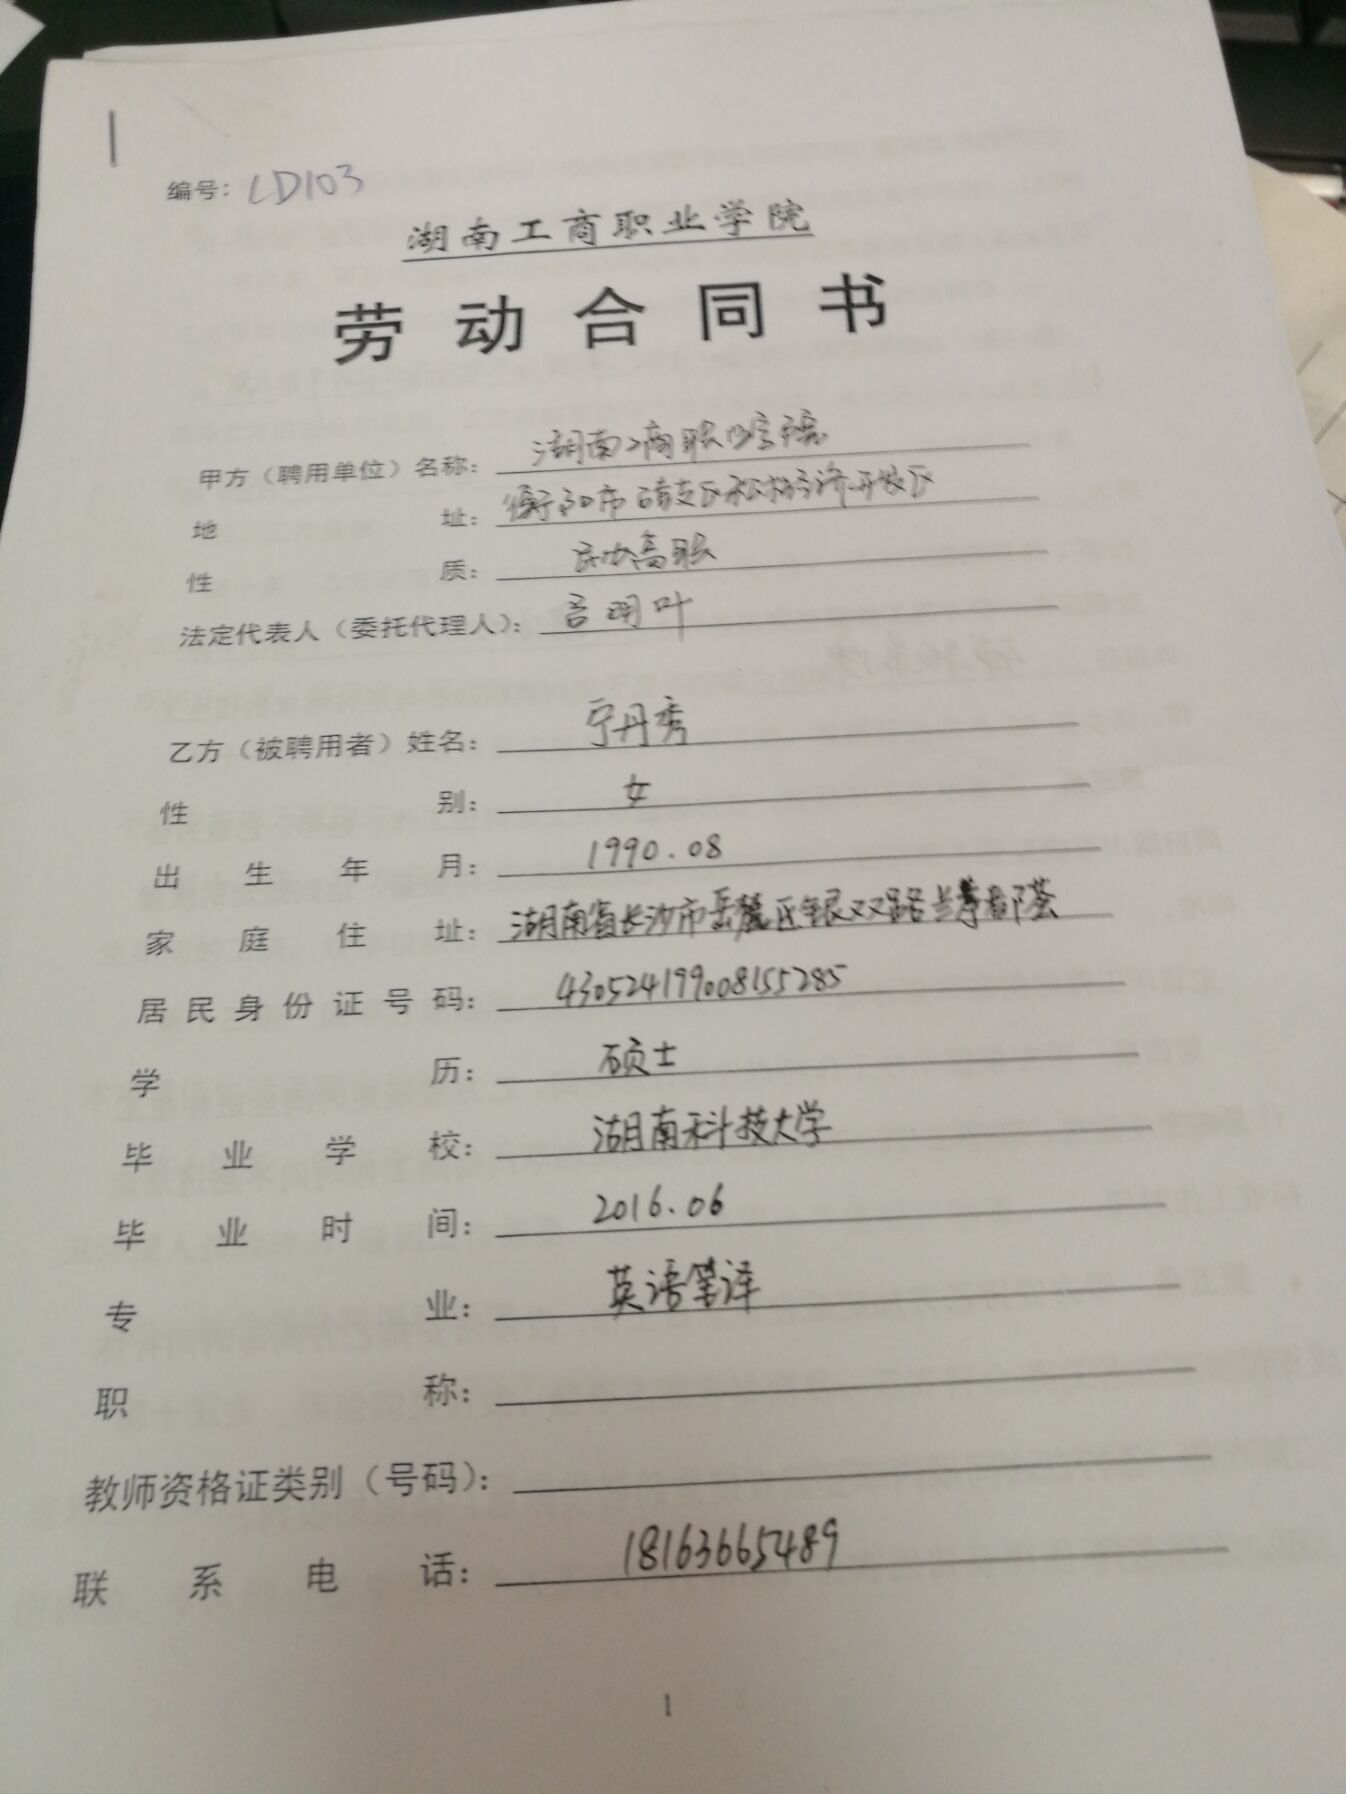 编号：LD103
湖南工商职业学院
劳动合同书
甲方（聘用单位）名称：湖南工商职业学院
地址：衡阳市石鼓区松木经济开发区
性质：民办高职
法定代表人（委托代理人）：吕明叶
乙方（被聘用者）姓名：宁丹秀
性别：女
出生年月：1990.08
家庭住址：湖南省长沙市岳麓区银双路兰亭都荟
居民身份证号码：430524199008155285
学历：硕士
毕业学校：湖南科技大学
毕业时间：2016.06
专业：英语笔译
职称：
教师资格证类别（号码）：
联系电话：18163665489
1